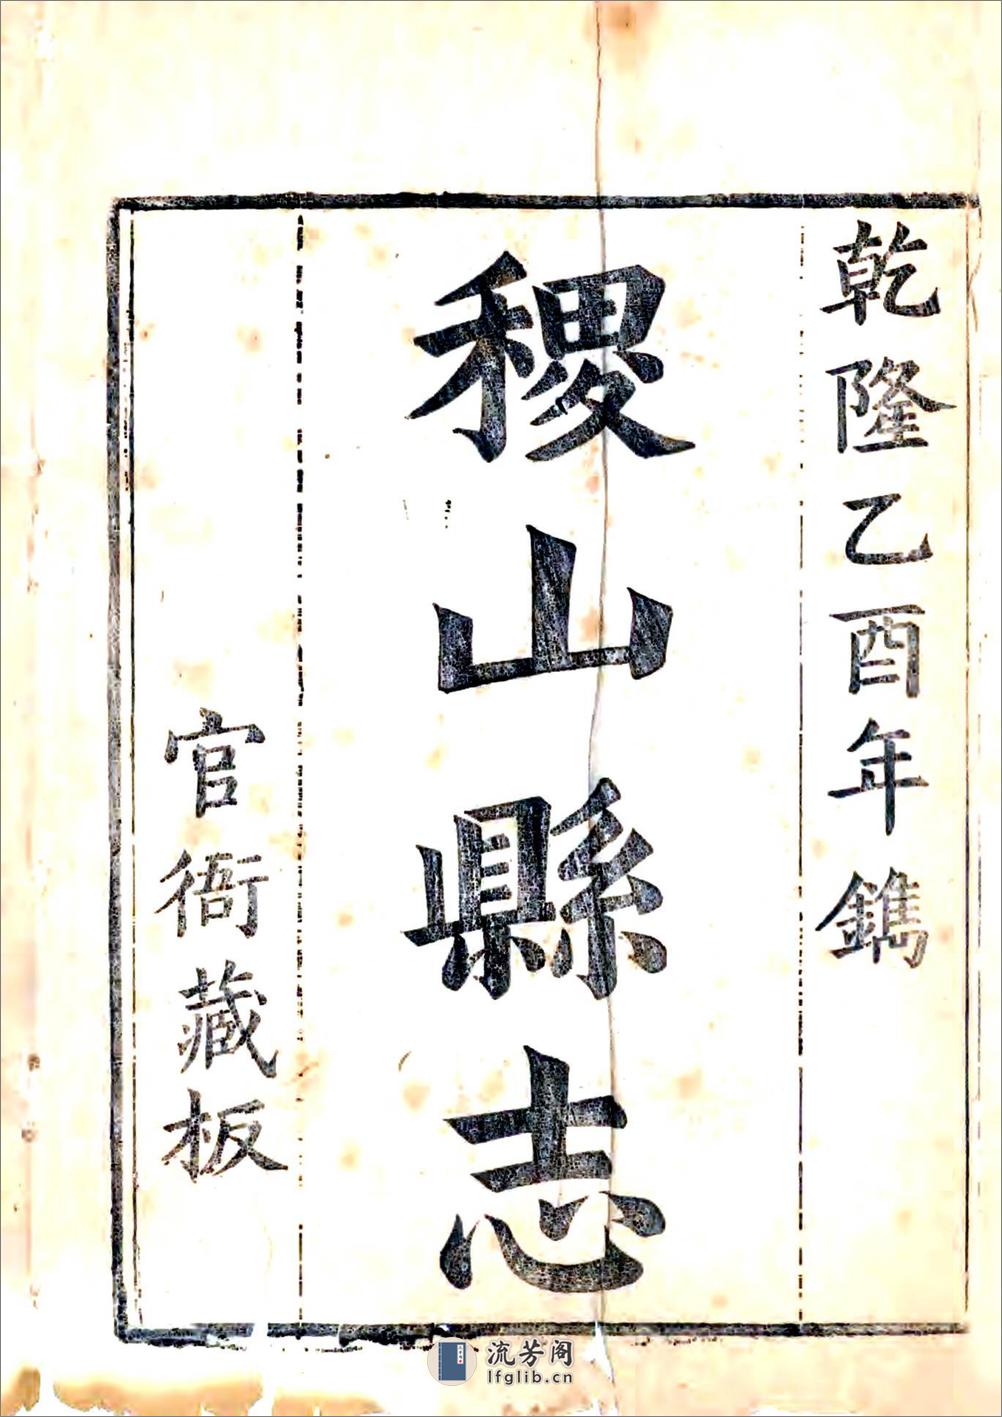 乾隆乙酉年鐫
稷山縣志
官衙藏板
流芳阁
lfglib.cn